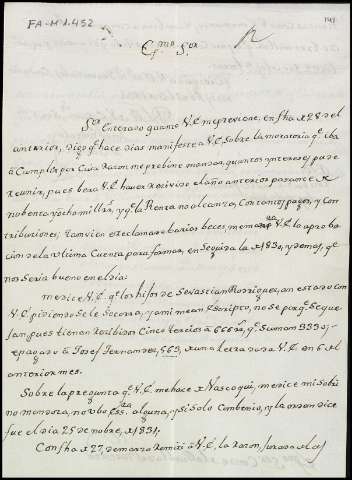 FA-M 1.452
Exmo Sor
Sor Enterado quanto V.E. me previene, en fha 28 del
anterior, digo qe hace dias manifesté a V.E. sobre la moratoria qe iba
a Cumplir, por Cuia razon me prebine mandar, quantos yntereses pude
reunir, pues bera V.E. haver recivido el año anterior pasante de
nobenta y ocho mill rrs, y qe la Renta no alcanza, Contantos pagos, y con
tribuciones; tambien e reclamado barias beces, me mande V.E. la aproba
cion de la Ultima Cuenta para formar, en Seguida la de 1830, y demas, qe
nos Seria bueno en el dia
me dice V.E. qe los hijos de Sevastian Rodriguez, an estado con
V.E. pidiendo Se le Socorra, y a mi me an Escripto, no Se porqe Se que
jan, pues tienen Recibidos Cinco tercios a 666 rrs qe Suman 3330, y
e pagado a Josef Fernandez, 563, de una letra de V.E. en 6 del
anterior mes.
Sobre la pregunta qe V.E. me hace de Nascoqui, me dice mi Sobri
no Mendoza, no ubo Essra alguna, y si Solo Combenio, y la orden dice
fue el dia 25 de nobre, de 1831,
Con fha 27, de marzo Remiti a V.E. la Razon, Jurada de las